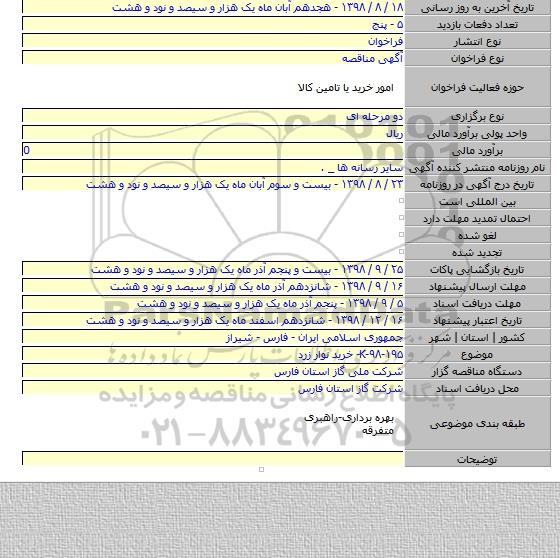 تاریخ آخرین به روز رسانی ۱۸ / ۸ / ۱۳۹۸ - هجدهم آبان ماه یک هزار و سیصد و نود و هشت
تعداد دفعات بازدید ۵ - پنج
نوع انتشار فراخوان
نوع فراخوان آگهی مناقصه
حوزه فعالیت فراخوان امور خرید با تامین کالا
نوع برگزاری دو مرحله ای
واحد پولی برآورد مالی ریال
برآورد مالی 0
نام روزنامه منتشر کننده آگهی سایر رسانه ها _ .
تاریخ درج آگهی در روزنامه ۲۳ / ۸ / ۱۳۹۸ - بیست و سوم آبان ماه یک هزار و سیصد و نود و هشت
بین المللی است
احتمال تمدید مهلت دارد
لغو شده
تجدید شده
تاریخ بازگشایی پاکات ۲۵ / ۹ / ۱۳۹۸ - بیست و پنجم آذر ماه یک هزار و سیصد و نود و هشت
مهلت ارسال پیشنهاد ۱۶ / ۹ / ۱۳۹۸ - شانزدهم آذر ماه یک هزار و سیصد و نود و هشت
مهلت دریافت اسناد ۵ / ۹ / ۱۳۹۸ - پنجم آذر ماه یک هزار و سیصد و نود و هشت
تاریخ اعتبار پیشنهاد ۱۶ / ۱۲ / ۱۳۹۸ - شانزدهم اسفند ماه یک هزار و سیصد و نود و هشت
کشور | استان | شهر جمهوری اسلامی ایران - فارس - شیراز
موضوع K-۹۸-۱۹۵- خرید نوار زرد
دستگاه مناقصه گزار شرکت ملی گاز استان فارس
محل دریافت اسناد شرکت گاز استان فارس
طبقه بندی موضوعی بهره برداری-راهبری
متفرقه
توضیحات
پایگاه اطلاع رسانی مناقصه و مزایده
۰۲۱-۸۸۳۴۹۶۷۰-۵